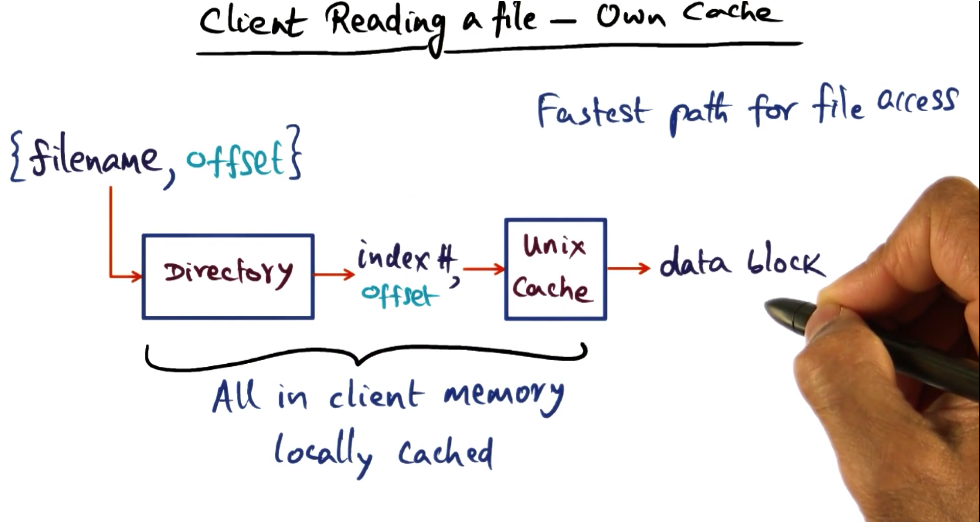 Client Reading a file - Own Cache
Fastest path for file access
{filename, offset}
Directory
index #,
offset
Unix
Cache
data block
All in client memory
locally cached